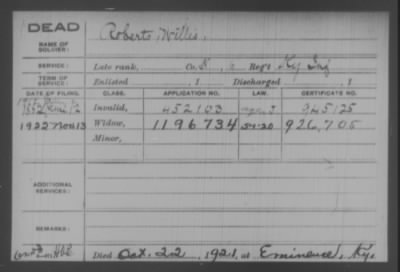 DEAD
Roberts, Willis.
NAME OF SOLDIER:
SERVICE: Late rank, Co. , Reg't Ky Inf
TERM OF SERVICE: Enlisted , 1 Discharged , 1
DATE OF FILING. CLASS. APPLICATION NO. LAW. CERTIFICATE NO.
Invalid, 452163 945125
1922 Nov 13 Widow, 1196734 926,705
Minor,
ADDITIONAL SERVICES:
REMARKS:
Died Oct. 22, 1921, at Eminence, Ky.